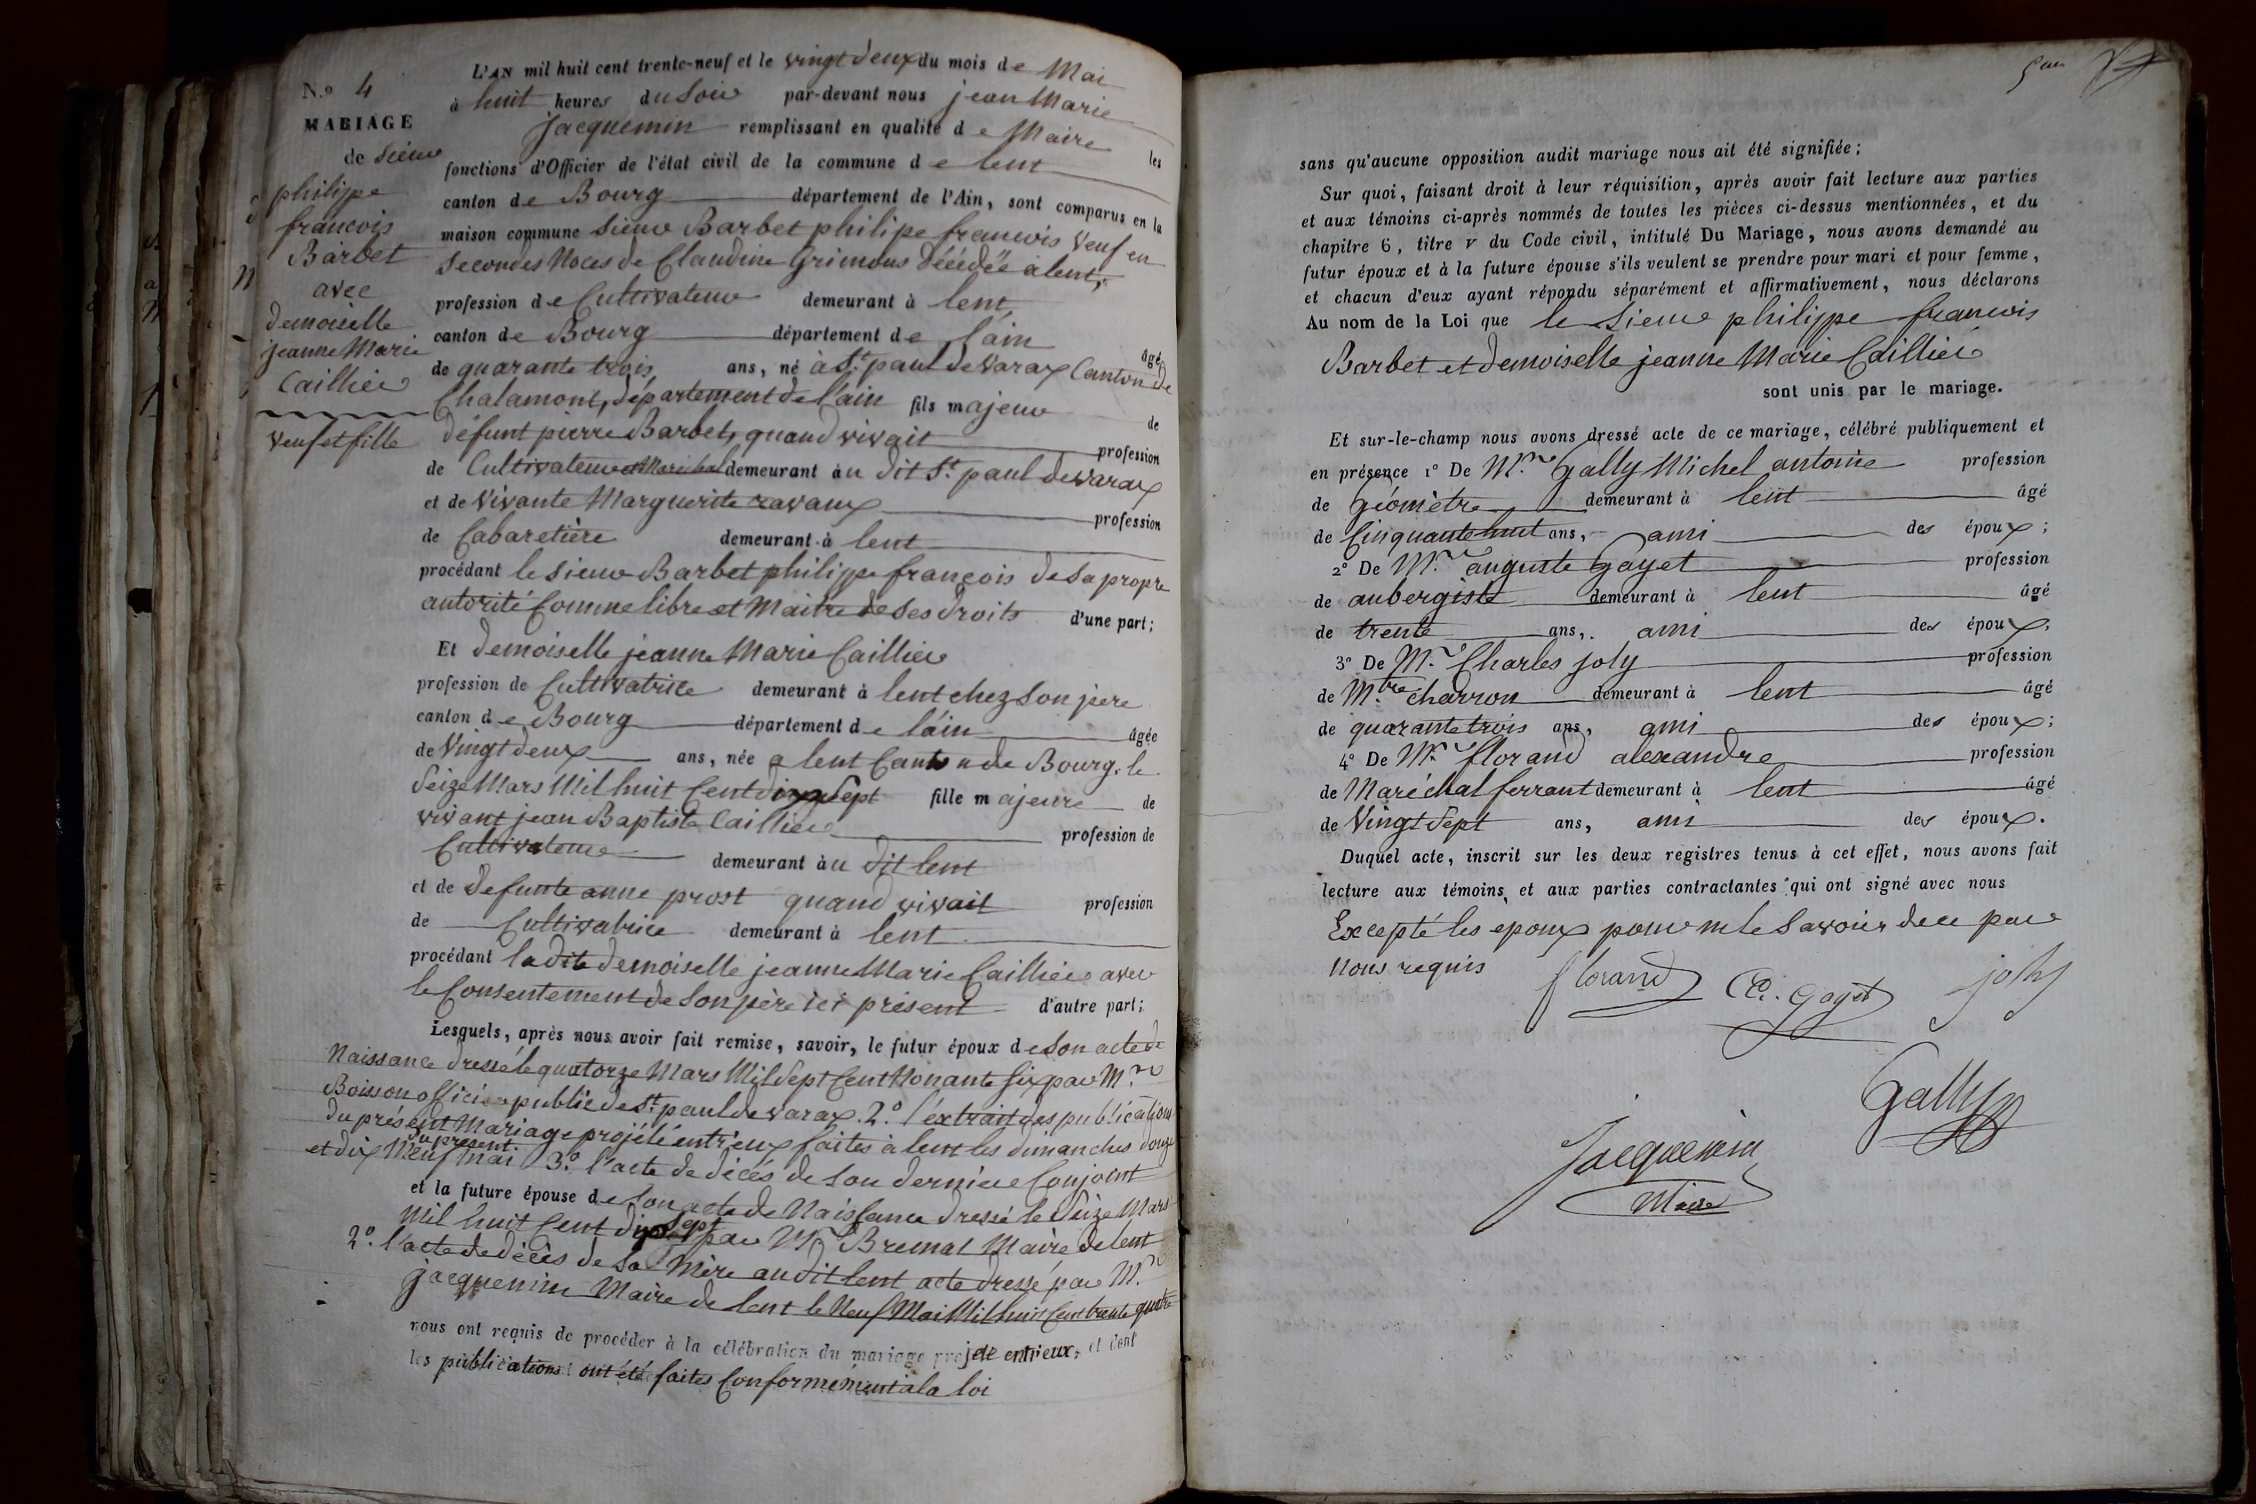 N.º 4
MARIAGE
de Sieur
philippe
francois
Barbet
avec
demoiselle
jeanne Marie
Caillier
veuf et fille
L'AN mil huit cent trente-neuf et le vingt deux du mois de Mai
à huit heures du Soir par-devant nous jean Marie
Jacquemin remplissant en qualité de Maire les
fonctions d'Officier de l'état civil de la commune de lent
canton de Bourg département de l'Ain, sont comparus en la
maison commune Sieur Barbet philipe francois Veuf en
Secondes Noces de Claudine Grimous décédée a lent,
profession de Cultivateur demeurant à lent
canton de Bourg département de l'ain âgé
de quarante trois ans, né à St. paul de Varax Canton de
Chalamont, département de l'ain fils majeur de
défunt pierre Barbet, quand vivait profession
de Cultivateur et Maréchal demeurant au dit St. paul de varax
et de Vivante Marguerite ravaux profession
de Cabaretière demeurant à lent
procédant le Sieur Barbet philippe françois de Sa propre
autorité Comme libre et Maitre de Ses droits d'une part;
Et demoiselle jeanne Marie Caillier
profession de Cultivatrice demeurant à lent chez Son père
canton de Bourg département de l'ain âgée
de Vingt deux ans, née a lent Canton de Bourg. le
Seize Mars Mil huit Cent dix Sept fille majeure de
vivant jean Baptiste Caillier profession de
Cultivateur demeurant au dit lent
et de defunte anne prost quand vivait profession
de Cultivatrice demeurant à lent
procédant la dite demoiselle jeanne Marie Caillier avec
le Consentement de Son père ici présent d'autre part;
Lesquels, après nous avoir fait remise, savoir, le futur époux de Son acte de
Naissance dressé le quatorze Mars Mil Sept Cent Nonante Six par Mr.
Boisson officier public de St. paul de varax. 2.º l'extrait des publications
du présent Mariage projété entr'eux faites à lent les dimanches douze
et dix Neuf mai du présent 3.º l'acte de décés de Son dernière Conjoint
et la future épouse de Son acte de Naissance dressé le Seize Mars
Mil huit Cent dix Sept par Mr. Bremal Maire de lent
2.º l'acte de décès de Sa Mère au dit lent acte dressé par Mr.
Jacquemin Maire de lent le Neuf Mai Mil huit Cent trente quatre
nous ont requis de procéder à la célébration du mariage projeté entr'eux, et dont
les publications ont été faites Conformément a la loi
5me
sans qu'aucune opposition audit mariage nous ait été signifiée;
Sur quoi, faisant droit à leur réquisition, après avoir fait lecture aux parties
et aux témoins ci-après nommés de toutes les pièces ci-dessus mentionnées, et du
chapitre 6, titre v du Code civil, intitulé Du Mariage, nous avons demandé au
futur époux et à la future épouse s'ils veulent se prendre pour mari et pour femme,
et chacun d'eux ayant répondu séparément et affirmativement, nous déclarons
Au nom de la Loi que le Sieur philippe francois
Barbet et demoiselle jeanne Marie Caillier
sont unis par le mariage.
Et sur-le-champ nous avons dressé acte de ce mariage, célébré publiquement et
en présence 1º De Mr. Gally Michel antoine profession
de Géomètre demeurant à lent âgé
de Cinquante huit ans, ami des époux;
2º De Mr. auguste Gayet profession
de aubergiste demeurant à lent âgé
de trente ans, ami des époux;
3º De Mr. Charles joly profession
de Mtre charron demeurant à lent âgé
de quarante trois ans, ami des époux;
4º De Mr. florand alexandre profession
de Maréchal ferrant demeurant à lent âgé
de Vingt Sept ans, ami des époux.
Duquel acte, inscrit sur les deux registres tenus à cet effet, nous avons fait
lecture aux témoins et aux parties contractantes qui ont signé avec nous
Excepté les epoux pour ne le Savoir de ce par
Nous requis
florand
Gayet
joly
Gally
Jacquemin
Maire